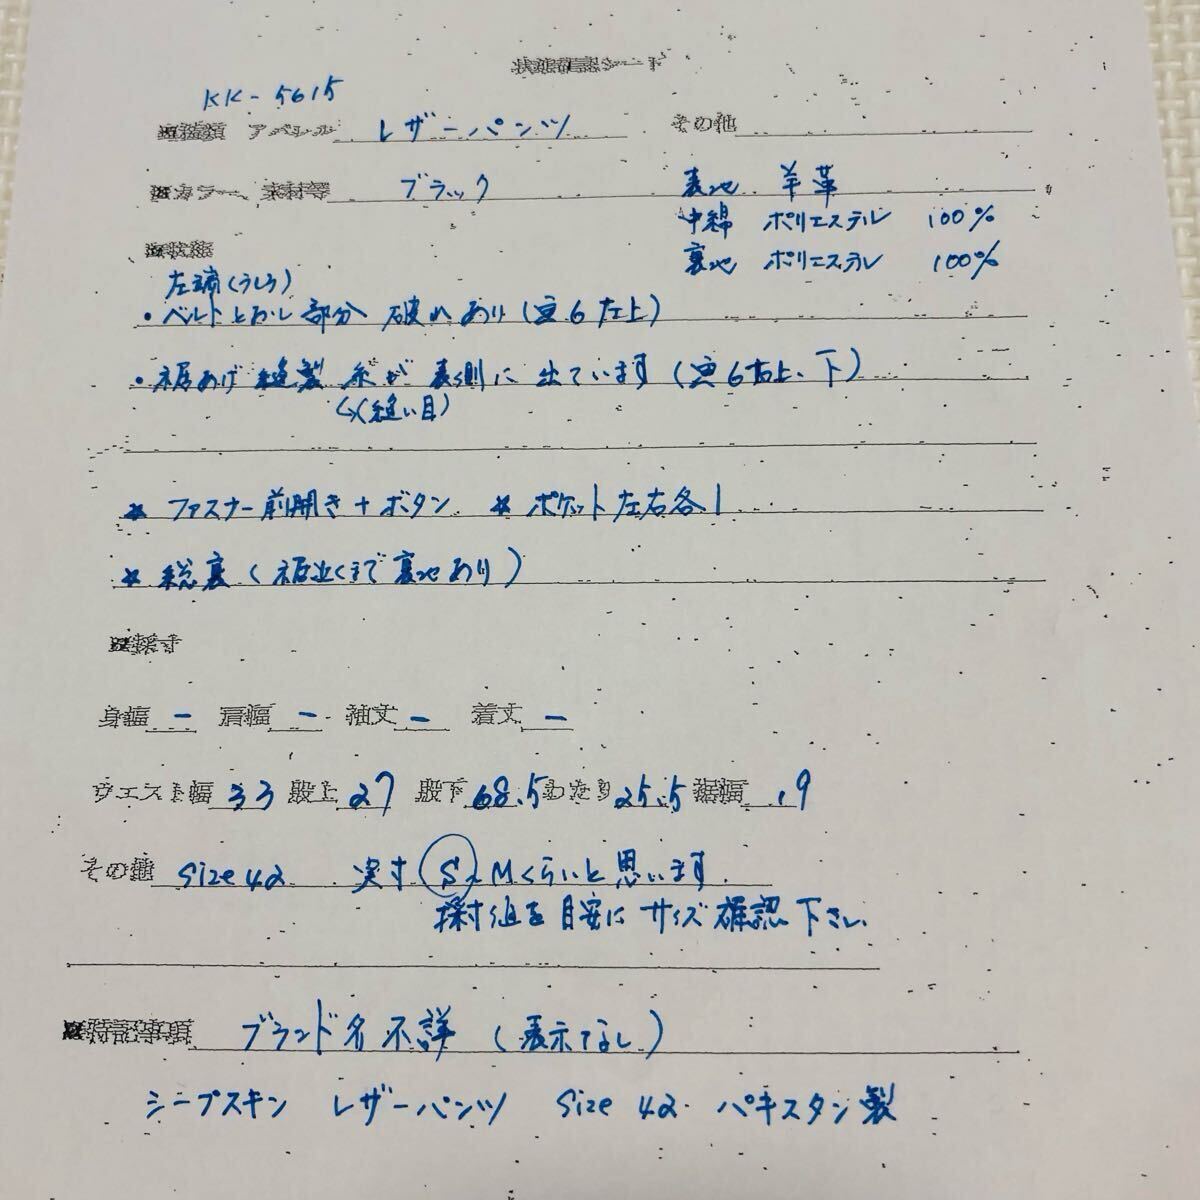 状態確認シート
KK-5615
■種類 アパレル レザーパンツ その他
■カラー、素材等 ブラック 表地 羊革
中綿 ポリエステル 100%
■状態 裏地 ポリエステル 100%
左端(うしろ)
・ベルトとおし部分 破れあり(写6左上)
・裾あげ 縫製 糸が表側に出ています(写6右上、下)
↳(縫い目)
* ファスナー前開き+ボタン * ポケット左右各1
* 総裏(裾近くまで裏地あり)
■採寸
身幅 - 肩幅 - 袖丈 - 着丈 -
ウエスト幅 33 股上 27 股下 68.5 わたり 25.5 裾幅 19
その他 size 42 実寸 S~Mくらいと思います。
採寸値を目安にサイズ確認下さい。
■特記事項 ブランド名不詳(表示なし)
シープスキン レザーパンツ size 42 パキスタン製